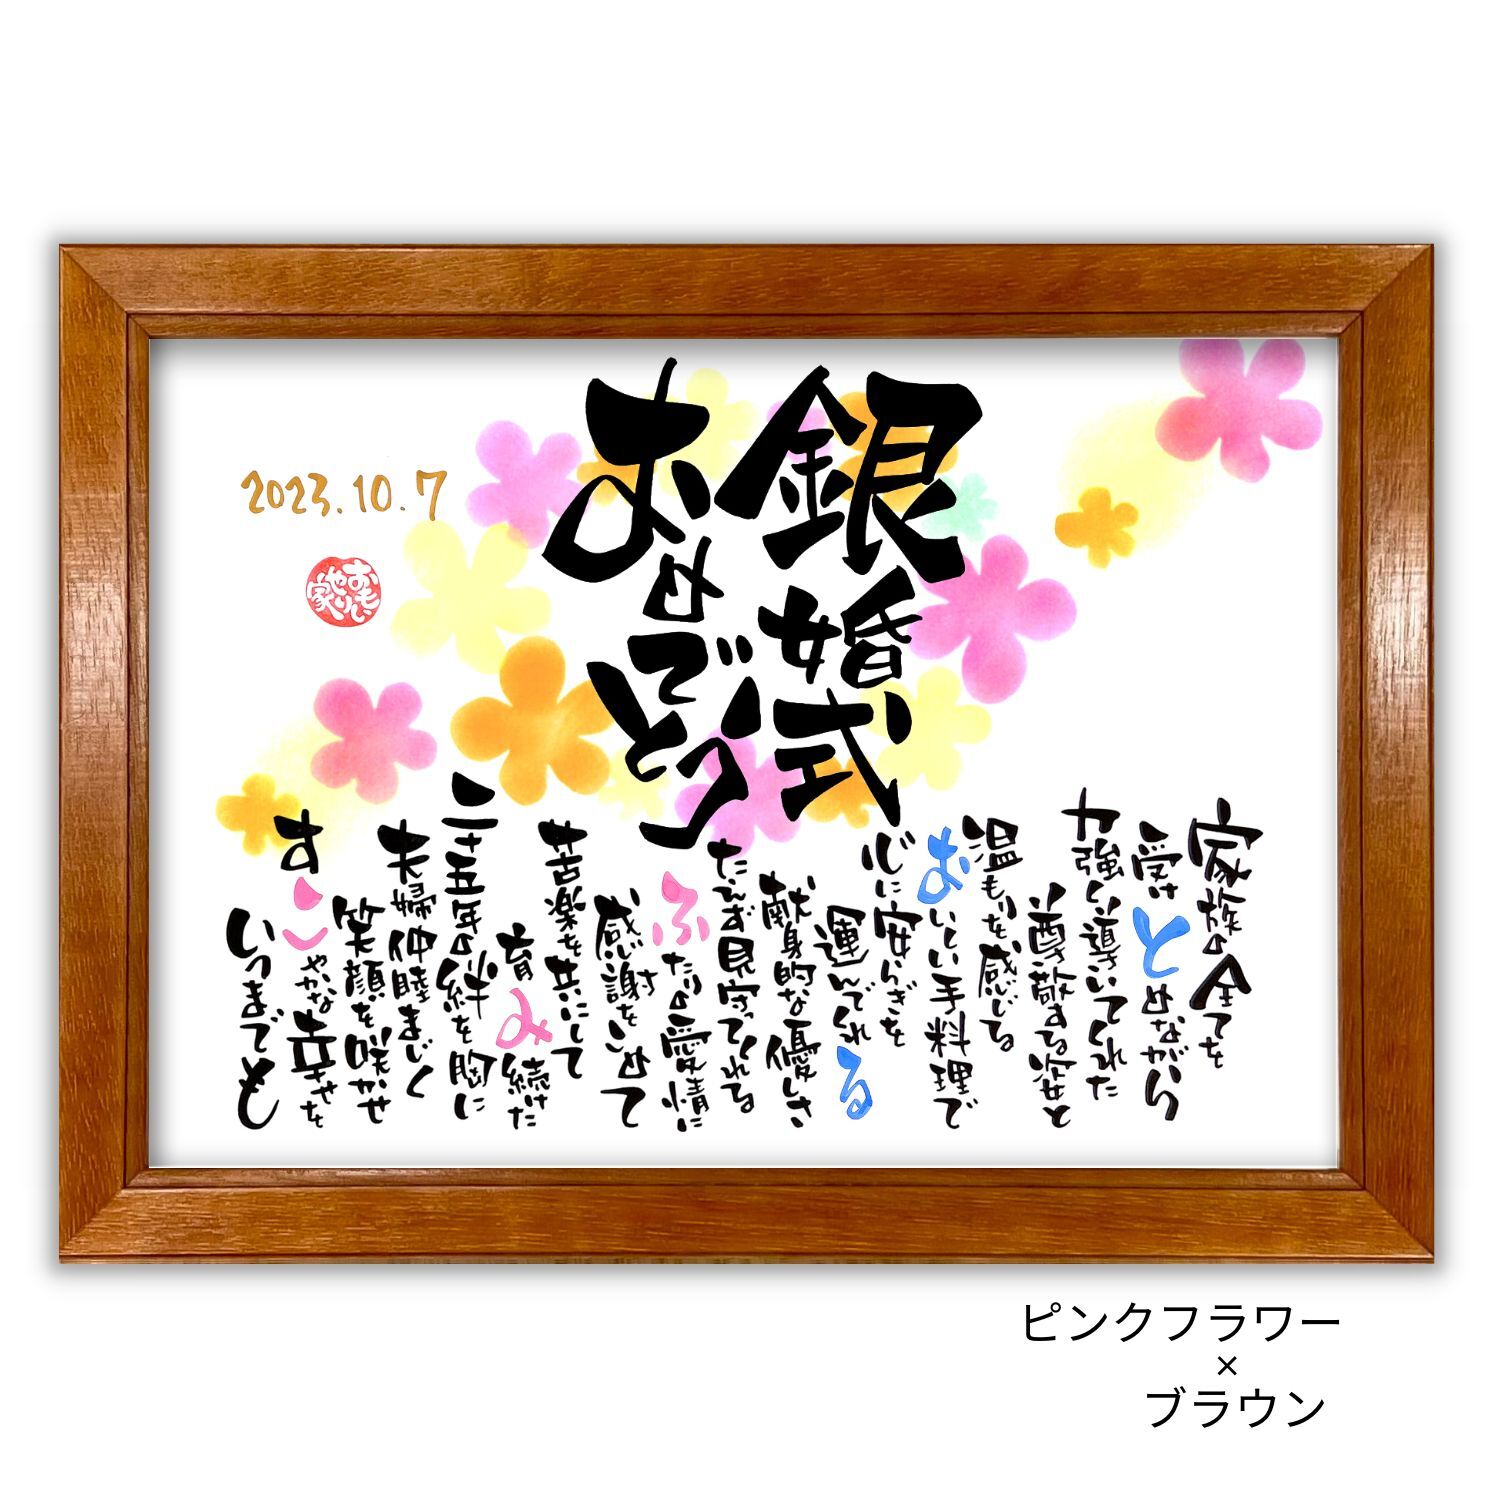 銀婚式
おめでとう
家族の全てを
受けとめながら
力強く導いてくれた
尊敬する姿と
温もりを感じる
おいしい手料理で
心に安らぎを
運んでくれる
献身的な優しさ
たえず見守ってくれてる
ふたりの愛情に
感謝をこめて
苦楽を共にして
育み続けた
二十五年の絆を胸に
夫婦仲睦まじく
笑顔を咲かせ
すこやかな幸せを
いつまでも
2023.10.7
おもいやり家
ピンクフラワー
×
ブラウン